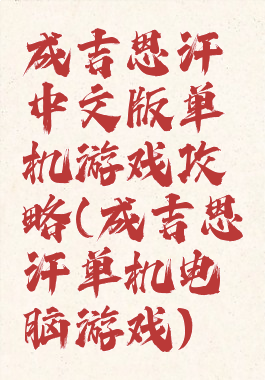 成吉思汗
中文版单
机游戏攻
略(成吉思
汗单机电
脑游戏)